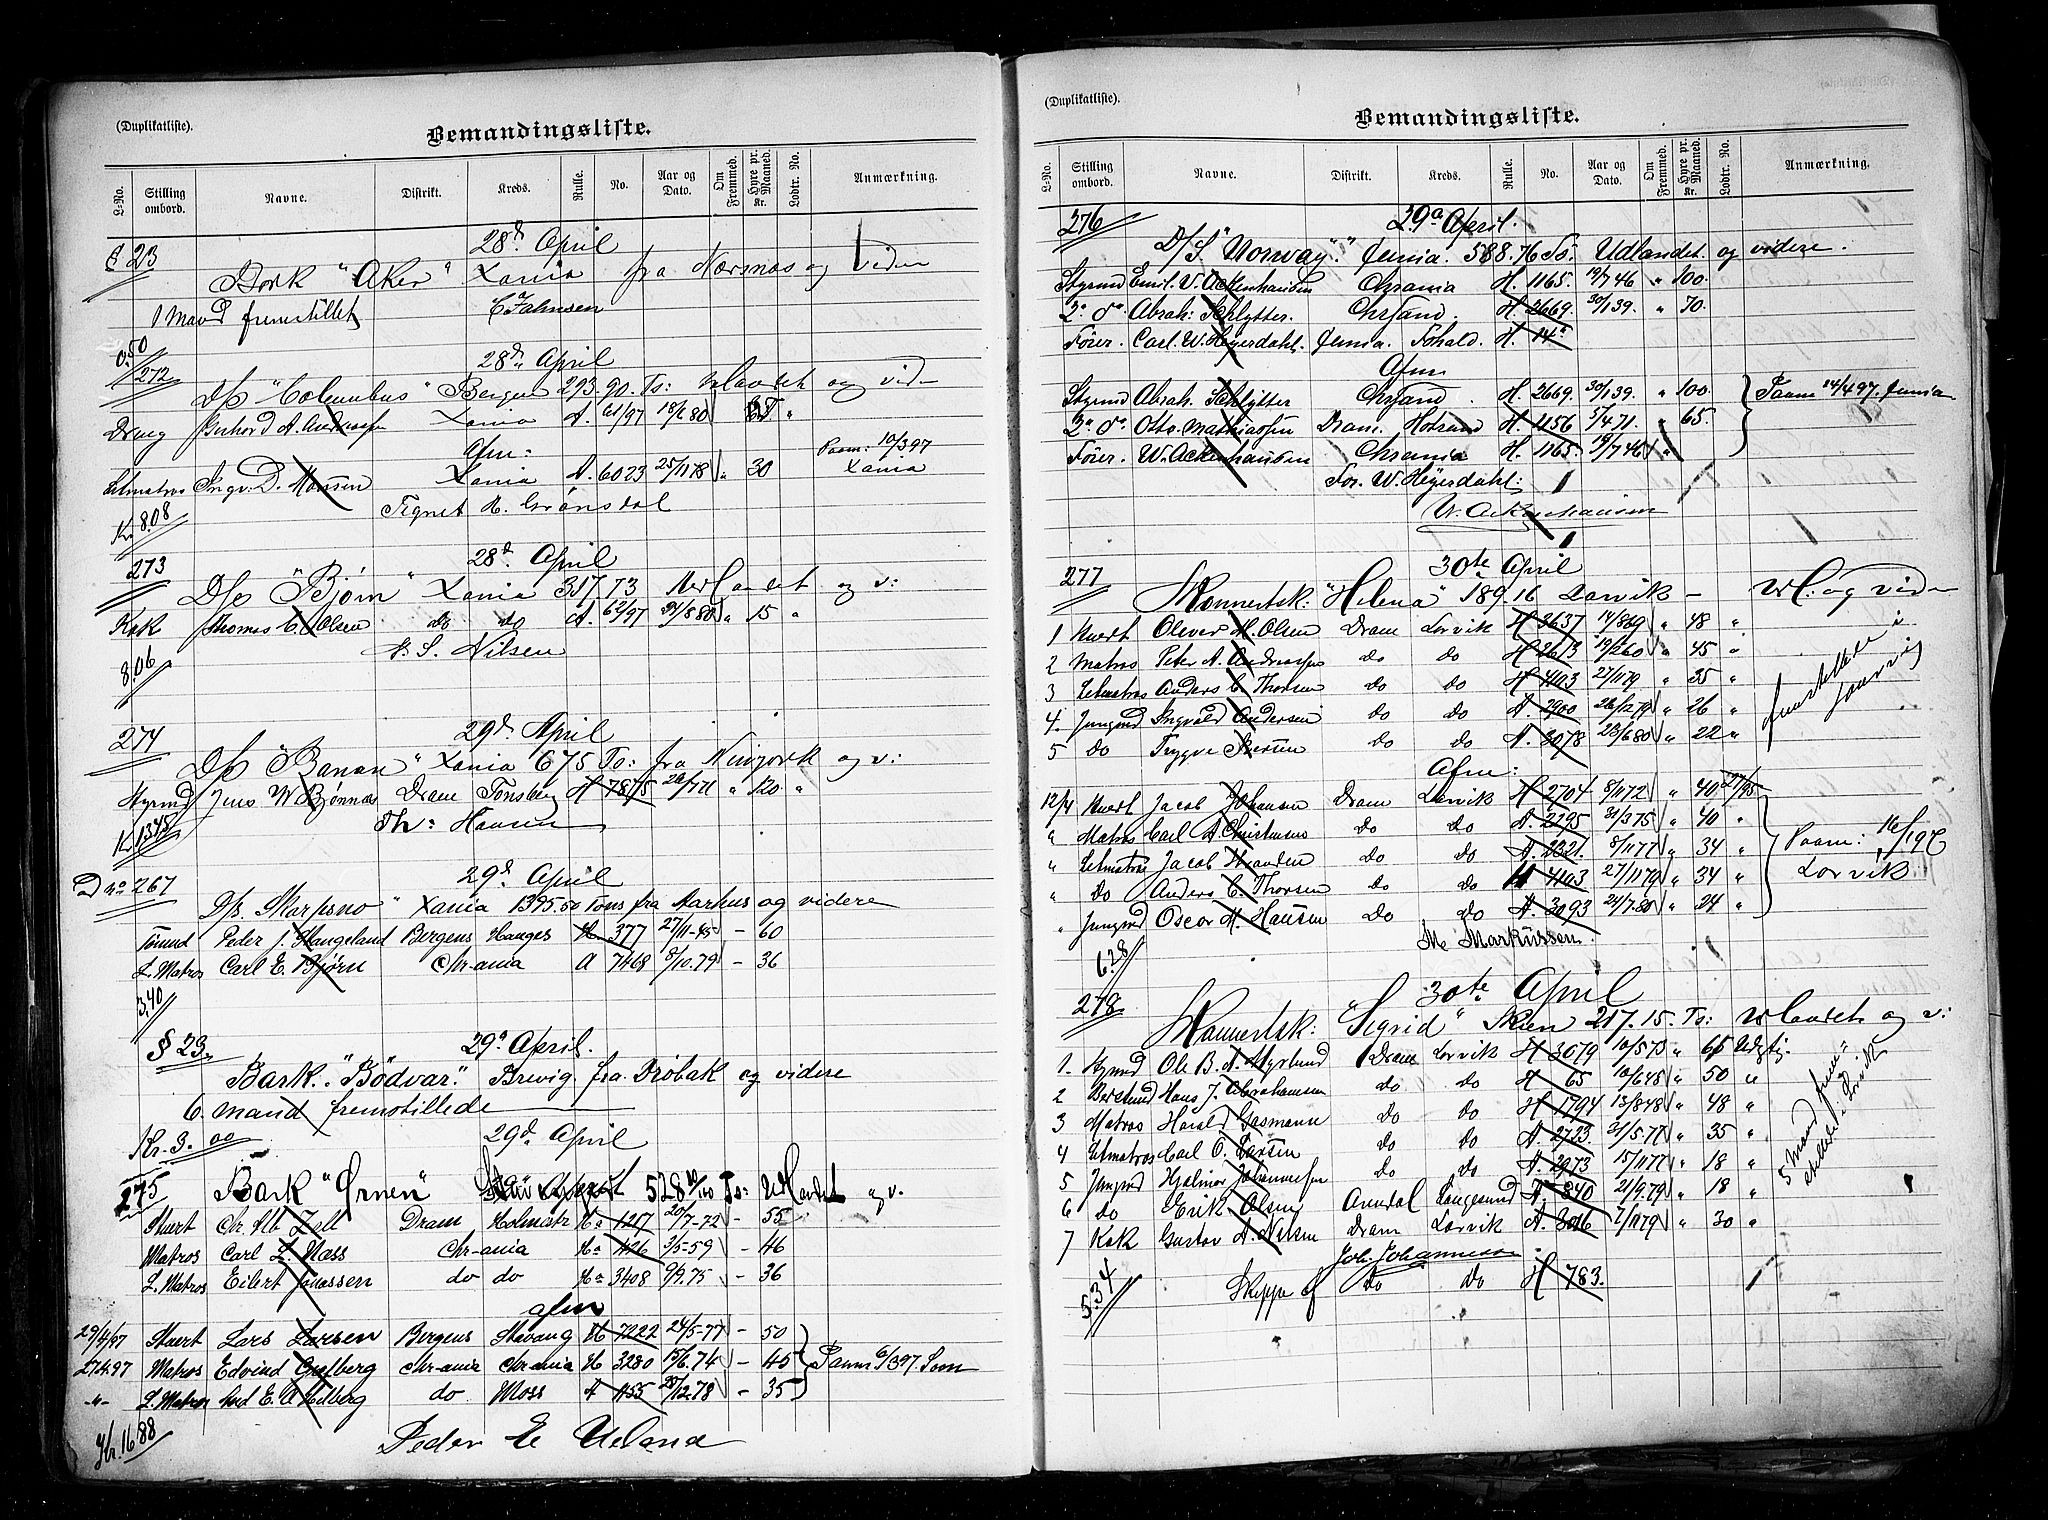 (Duplikatliste).
Bemandingsliste.
L-No. Stilling ombord. Navne. Distrikt. Kreds. Rulle. No. Aar og Dato. Om Fremmed. Hyre pr. Maaned. Kr. Lodtr. No. Anmærkning.
§ 23 28d April
Bark "Aker" Xania fra Nærsnes og viden
1 Mand fremstillet
0.50
272 28d April
D/s "Columbus" Bergen 293.90 Ts: Udlandet og vid
Dreng A. Andreassen Xania A. 61/97
Afm: Paam: 10/3 97
Letmatros Ingv. D. Hansen Xania A. 6023 25/11 78 " 30 Xania
Tegnet H. Grönsdal
Kr 8.08
273 28d April
D/s "Bjørn" Xania 317.73 Udlandet og v:
Kok Thomas C. Olsen do do A. 62/97 /8 80 " 15 "
S. Nilsen
8.06
274 29d April
D/s "Banan" Xania 675 Ts: fra Newyork og v:
Styrmd Jens W. Bjønnes Dram Tønsberg H 7875 " 120 "
Th: Hansen
Kr 13.48
D no 267 29d April
D/s. Skarpsno" Xania 1395.50 Tons fra Aarhus og videre
Tömmd Peder J. Haugeland Bergens Hauges H. 377 27/11-45 - 60
L. Matros Carl E. Bjørn Chr-ania A 7468 8/10.79 - 36
3.40
§ 23. 29d April.
Bark. "Bödvar." Brevig. fra Dröbak og videre
6. mand fremstillede
Kr. 3.00 29d April
275 Bark "Ørnen" 528 Ts: Udlandet og v.
Stuert Chr. Alb Zell Dram Holmestr Ha 1217 20/7-72 - 55
Matros Carl L. Næss Chr-ania Ha 426 3/5-59 - 46
L. Matros Eilert Jonassen do do Ha 3408 9/9.75 - 36
afm
29/4/97 Stuert Lars Larsen Bergens Stavang H 7222 24/5-77 - 50
27.4.97 Matros Edvind Chr-ania Chr-ania H 3280 15/6.74 - 45 Paam 6/3 97. Som
-"- L. Matros E. A Hedberg do Moss A 1155 28/12.78 - 35
Kr. 16.88 Peder E Ueland
(Duplikatliste).
Bemandingsliste.
L-No. Stilling ombord. Navne. Distrikt. Kreds. Rulle. No. Aar og Dato. Om Fremmed. Hyre pr. Maaned. Kr. Lodtr. No. Anmærkning.
276 29d April.
D/S "Norway." Jenia. 588.76 To. Udlandet. og videre.
Styrmd Emil. W. Ackenhausen Chrania H. 1165. 19/7 46 " 100.
2n do Abrah: Schlytter. Chrsand. H. 2669. 30/1 39. " 70.
Förer. Carl. W. Heyerdahl. Jenia. H. 14
Afm
Styrmd Abrah. Schlytter Chrsand. H. 2669. 30/1 39. " 100. Paam 14/4 97. Jenia
2n do Otto. Mathiassen Dram. H. 1156 5/4 71. " 65.
Förer. W. Ackenhausen Chrania H. 1165. 19/7 46 "
For. W. Heyerdahl:
W. Ackenhausen
277 30te April
Skonnertsk: "Helena" 189.16 Larvik - Udl: og viden
1 Stuert Olever M. Olsen Dram Larvik H 3637 14/8 69 " 48 "
2 Matros Peter A. Andreassen do do H 2613 19/2 60 " 45 "
3 Letmatros Anders C. Thorsen do do H 4103 27/11 79 " 35 "
4. Jungmd Ingvald Andersen do do A. 2900 26/12 79 " 26 "
5 do Trygve Iversen do do A. 3078 23/6 80 " 22 "
Afm:
12/4 Stuert Jacob Johansen Dram Larvik H 2704 8/11 72 " 40 27/95
" Matros Carl A. Christensen do do A. 2295 31/3 75 " 40 "
" Letmatros Jacob do do A. 2321. 8/11 77 " 34 " Paam: 16/1 97
" do Anders C. Thorsen do do H 4103 27/11 79 " 34 " Larvik
" Jungmd Oscar M. Hansen do do A. 3093 21/7.80 " 24 "
M. Markussen.
6.28
278 30te April
Skonnertsk: "Sigrid" Skien 217.15. Ts: Udlandet og v:
1- Styrmd Ole B. A. Myrlund Dram Larvik H 3079 10/5 73 " 65
2 Berstmd Hans J. Abrahamsen do do H 65 10/6 48 " 50 "
3 Matros Harald Gasmann do do H 1794 13/8 48 " 48 "
4 Letmatros Carl O. Larsen do do A. 2723. 31/5 77 " 35 "
5 Jungmd Hjalmar Johannessen do do A. 2973 15/11 77 " 18 "
6 do Erik Olsen Arendal Langesund A. 840 21/9.79 " 18 "
7 Kok Gustav A. Nilsen Dram Larvik A. 3016 7/11 79 " 30 "
5 mand frem-
stillet i Larvik
Joh. Johannessen
5.34 Skipper af do do H 783.